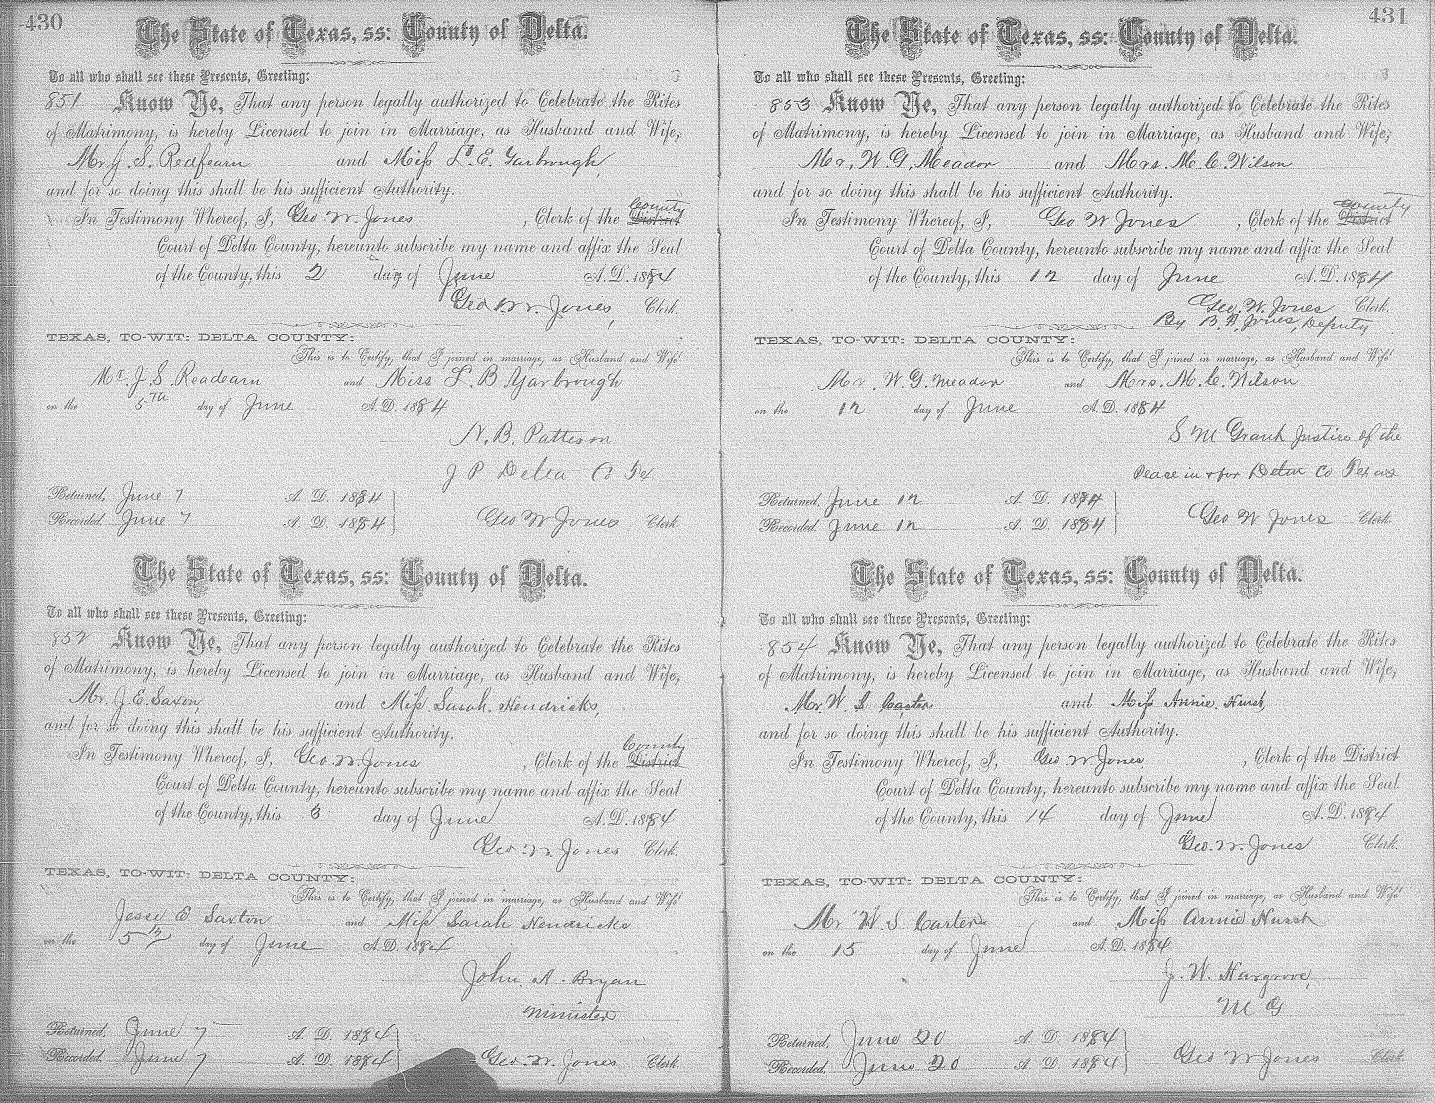 430
The State of Texas, ss: County of Delta.
To all who shall see these Presents, Greeting:
851 Know Ye, That any person legally authorized to Celebrate the Rites
of Matrimony, is hereby Licensed to join in Marriage, as Husband and Wife,
Mr J. S. Redfearn and Miss L. E. Yarbrough,
and for so doing this shall be his sufficient Authority.
In Testimony Whereof, I, Geo W. Jones, Clerk of the District County
Court of Delta County, hereunto subscribe my name and affix the Seal
of the County, this 2 day of June A.D. 1884
Geo. W. Jones, Clerk.
TEXAS, TO-WIT: DELTA COUNTY:
This is to Certify, that I joined in marriage, as Husband and Wife
Mr. J. S. Readearn and Miss L B Yarbrough
on the 5th day of June A.D. 1884
N. B. Patteson
J P Delta Co Tex
Returned, June 7 A. D. 1884
Recorded June 7 A. D. 1884 Geo W Jones Clerk
The State of Texas, ss: County of Delta.
To all who shall see these Presents, Greeting:
852 Know Ye, That any person legally authorized to Celebrate the Rites
of Matrimony, is hereby Licensed to join in Marriage, as Husband and Wife,
Mr. J. E. Saxton and Miss Sarah Hendricks,
and for so doing this shall be his sufficient Authority.
In Testimony Whereof, I, Geo. W. Jones, Clerk of the District County
Court of Delta County, hereunto subscribe my name and affix the Seal
of the County, this 3 day of June A.D. 1884
Geo. W. Jones Clerk.
TEXAS, TO-WIT: DELTA COUNTY:
This is to Certify, that I joined in marriage, as Husband and Wife
Jesse E Saxton and Miss Sarah Hendricks
on the 5th day of June A.D. 1884
John A. Bryan
Minister
Returned, June 7 A. D. 1884
Recorded June 7 A. D. 1884 Geo. W. Jones Clerk
431
The State of Texas, ss: County of Delta.
To all who shall see these Presents, Greeting:
853 Know Ye, That any person legally authorized to Celebrate the Rites
of Matrimony, is hereby Licensed to join in Marriage, as Husband and Wife,
Mr. W. G. Meador and Mrs. M. C. Wilson
and for so doing this shall be his sufficient Authority.
In Testimony Whereof, I, Geo W Jones, Clerk of the District County
Court of Delta County, hereunto subscribe my name and affix the Seal
of the County, this 12 day of June A.D. 1884
Geo. W. Jones Clerk.
By B. F. Jones, Deputy
TEXAS, TO-WIT: DELTA COUNTY:
This is to Certify, that I joined in marriage, as Husband and Wife
Mr. W. G. Meador and Mrs. M. C. Wilson
on the 12 day of June A.D. 1884
S M Grant Justice of the
Peace in & for Delta Co Texas
Returned, June 12 A. D. 1884
Recorded June 12 A. D. 1884 Geo W Jones Clerk
The State of Texas, ss: County of Delta.
To all who shall see these Presents, Greeting:
854 Know Ye, That any person legally authorized to Celebrate the Rites
of Matrimony, is hereby Licensed to join in Marriage, as Husband and Wife,
Mr. W. S. Carter and Miss Annie Hurst,
and for so doing this shall be his sufficient Authority.
In Testimony Whereof, I, Geo W Jones, Clerk of the District
Court of Delta County, hereunto subscribe my name and affix the Seal
of the County, this 14 day of June A.D. 1884
Geo. W. Jones Clerk.
TEXAS, TO-WIT: DELTA COUNTY:
This is to Certify, that I joined in marriage, as Husband and Wife
Mr W S Carter and Miss Annie Hurst
on the 15 day of June A.D. 1884
J. W. Hargrove,
M G
Returned, June 20 A. D. 1884
Recorded, June 20 A. D. 1884 Geo W Jones Clerk